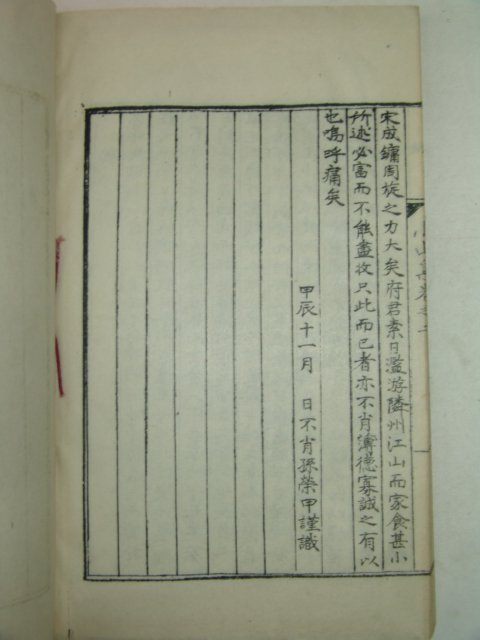 宋成鏞周旋之力大矣府君素日濫游隣州江山而家食甚小
所述必富而不能盡收只此而已者亦不肖薄德寡誠之有以
也嗚呼痛矣
甲辰十一月 日不肖孫榮甲謹識